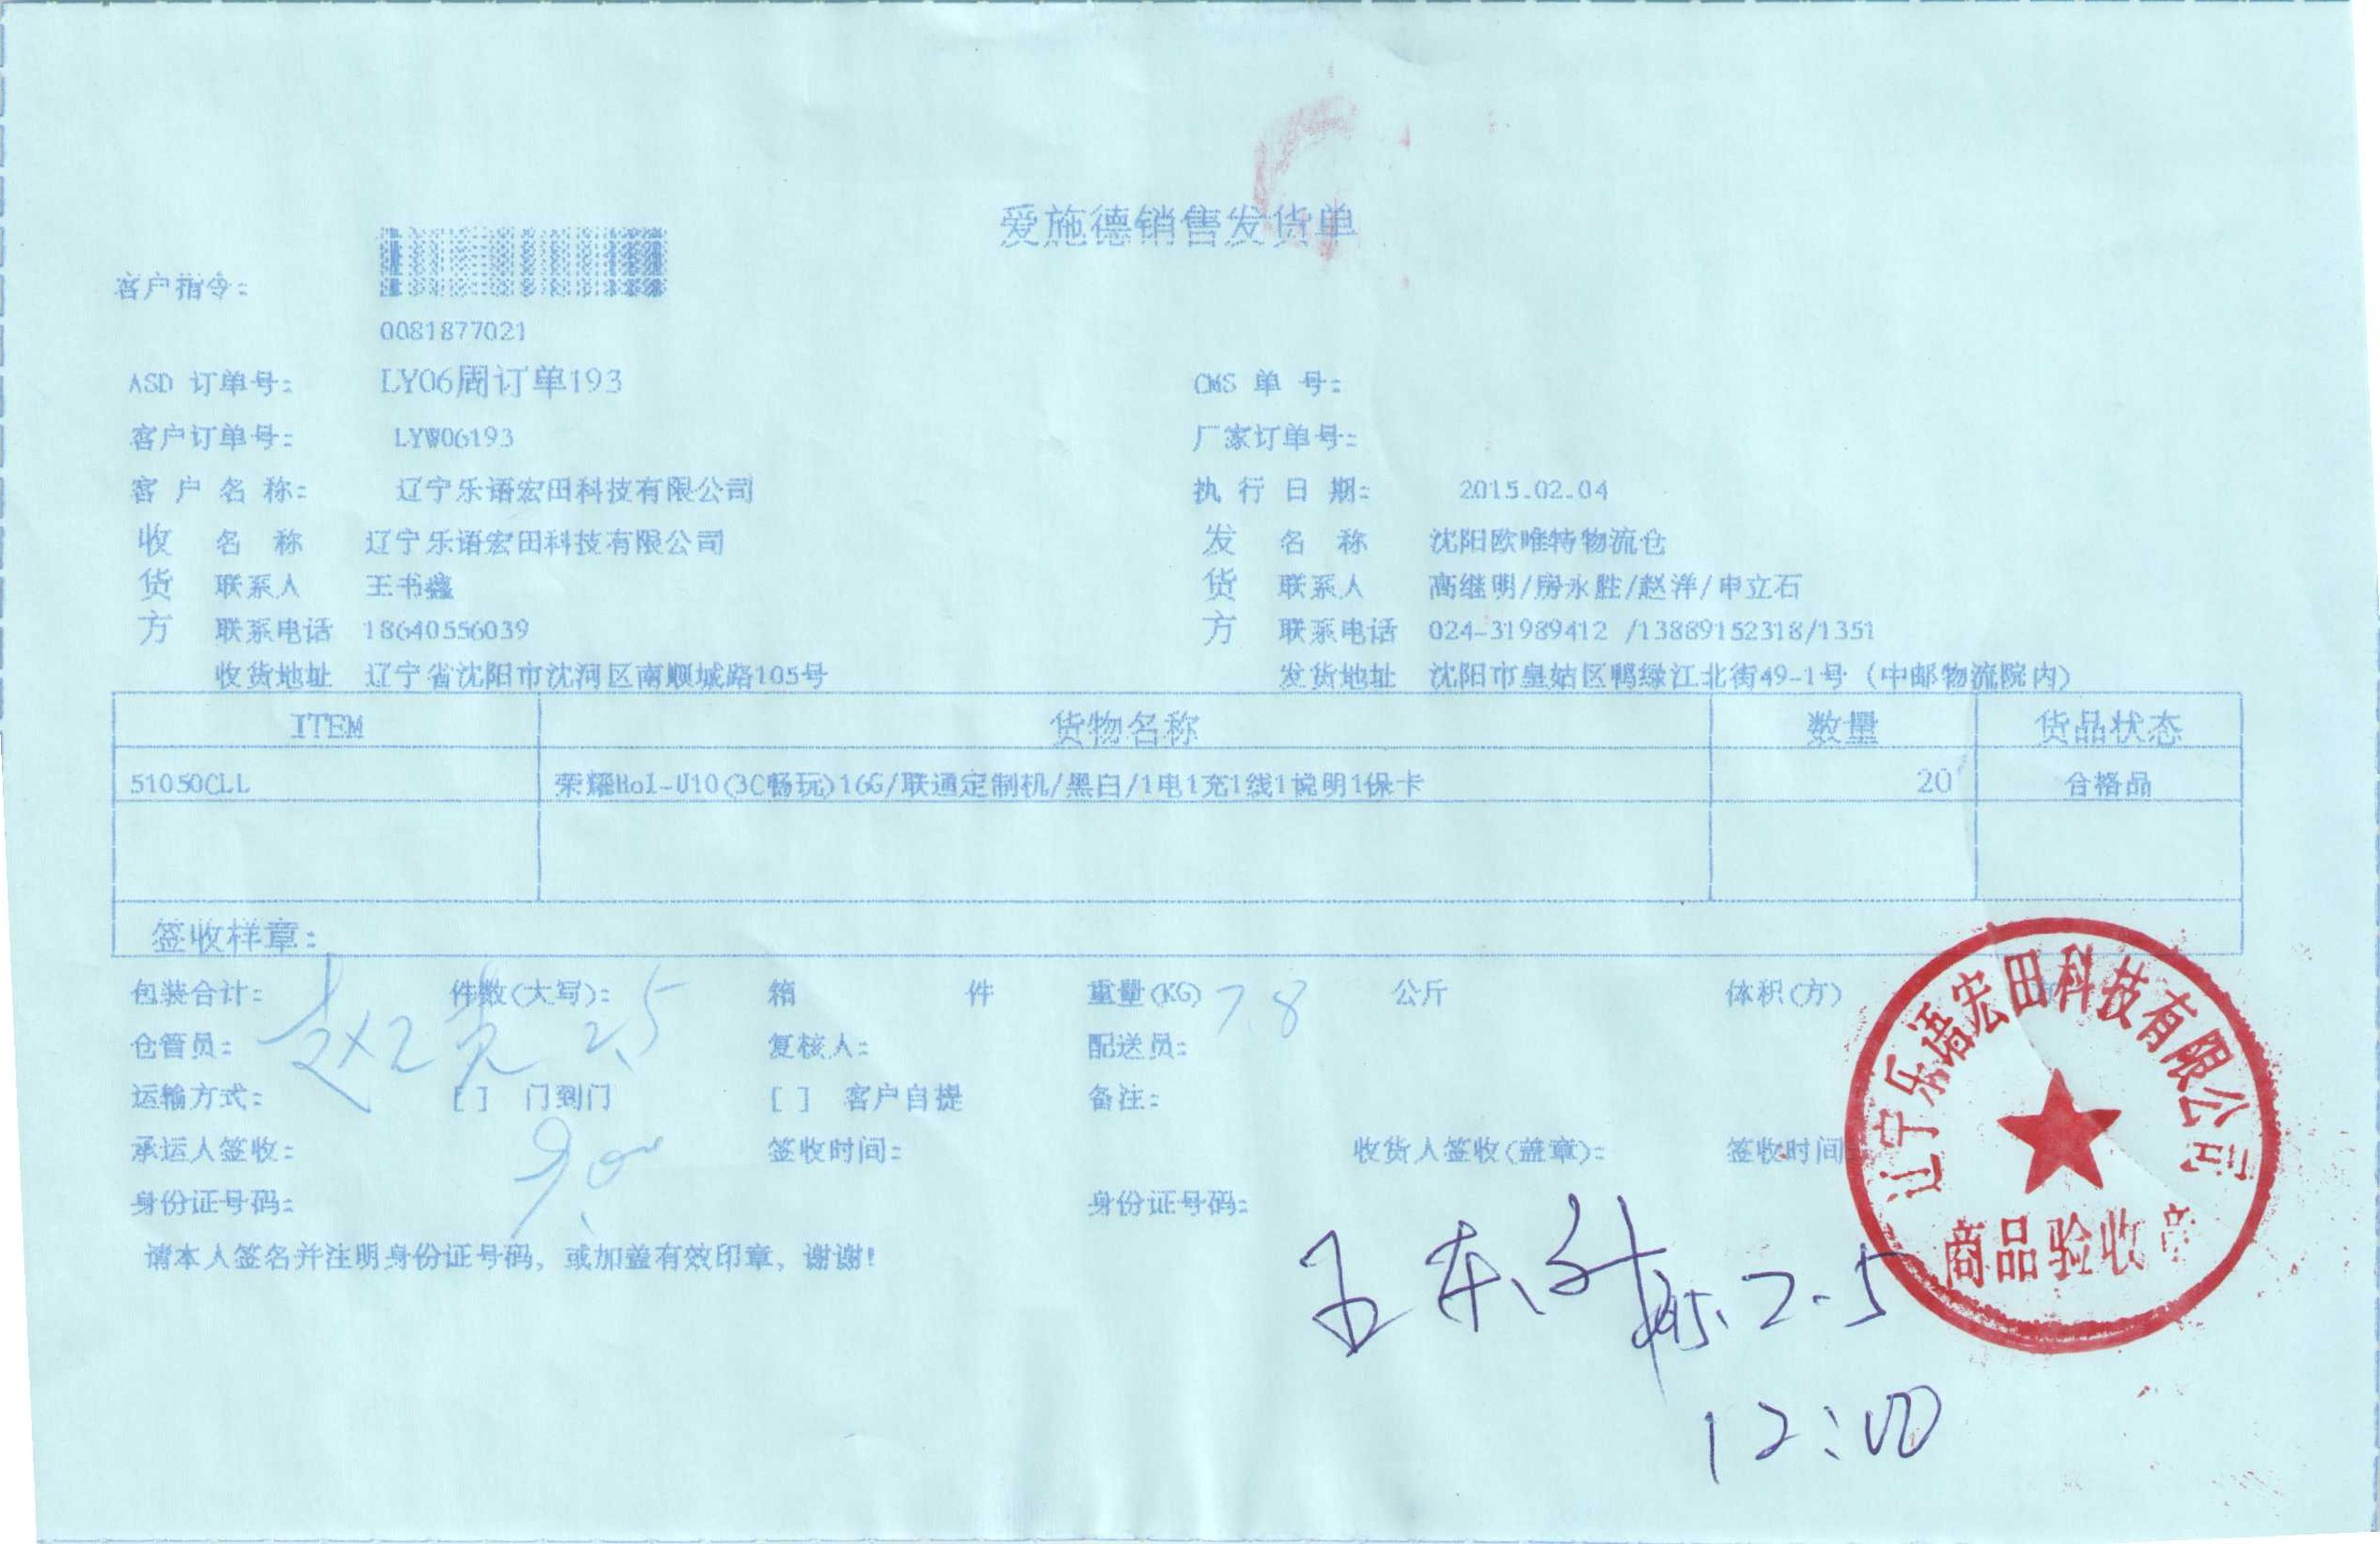 爱施德销售发货单
客户指令:
0081877021
ASD 订单号: LY06周订单193 CMS 单 号:
客户订单号: LYW06193 厂家订单号:
客 户 名 称: 辽宁乐语宏田科技有限公司 执 行 日 期: 2015.02.04
收货方 名 称 辽宁乐语宏田科技有限公司 发货方 名 称 沈阳欧唯特物流仓
联系人 王书鑫 联系人 高继明/房永胜/赵洋/申立石
联系电话 18640556039 联系电话 024-31989412 /13889152318/1351
收货地址 辽宁省沈阳市沈河区南顺城路105号 发货地址 沈阳市皇姑区鸭绿江北街49-1号 (中邮物流院内)
ITEM 货物名称 数量 货品状态
51050CLL 荣耀Hol-U10(3C畅玩)16G/联通定制机/黑白/1电1充1线1说明1保卡 20 合格品
签收样章:
包装合计: 件数(大写): 箱 件 重量(KG) 7.8 公斤 体积(方)
仓管员: 2.5 复核人: 配送员:
运输方式: [ ] 门到门 [ ] 客户自提 备注:
承运人签收: 签收时间: 收货人签收(盖章): 签收时间
身份证号码: 身份证号码:
请本人签名并注明身份证号码, 或加盖有效印章, 谢谢!
辽宁乐语宏田科技有限公司
商品验收章
15.2-5
12:00